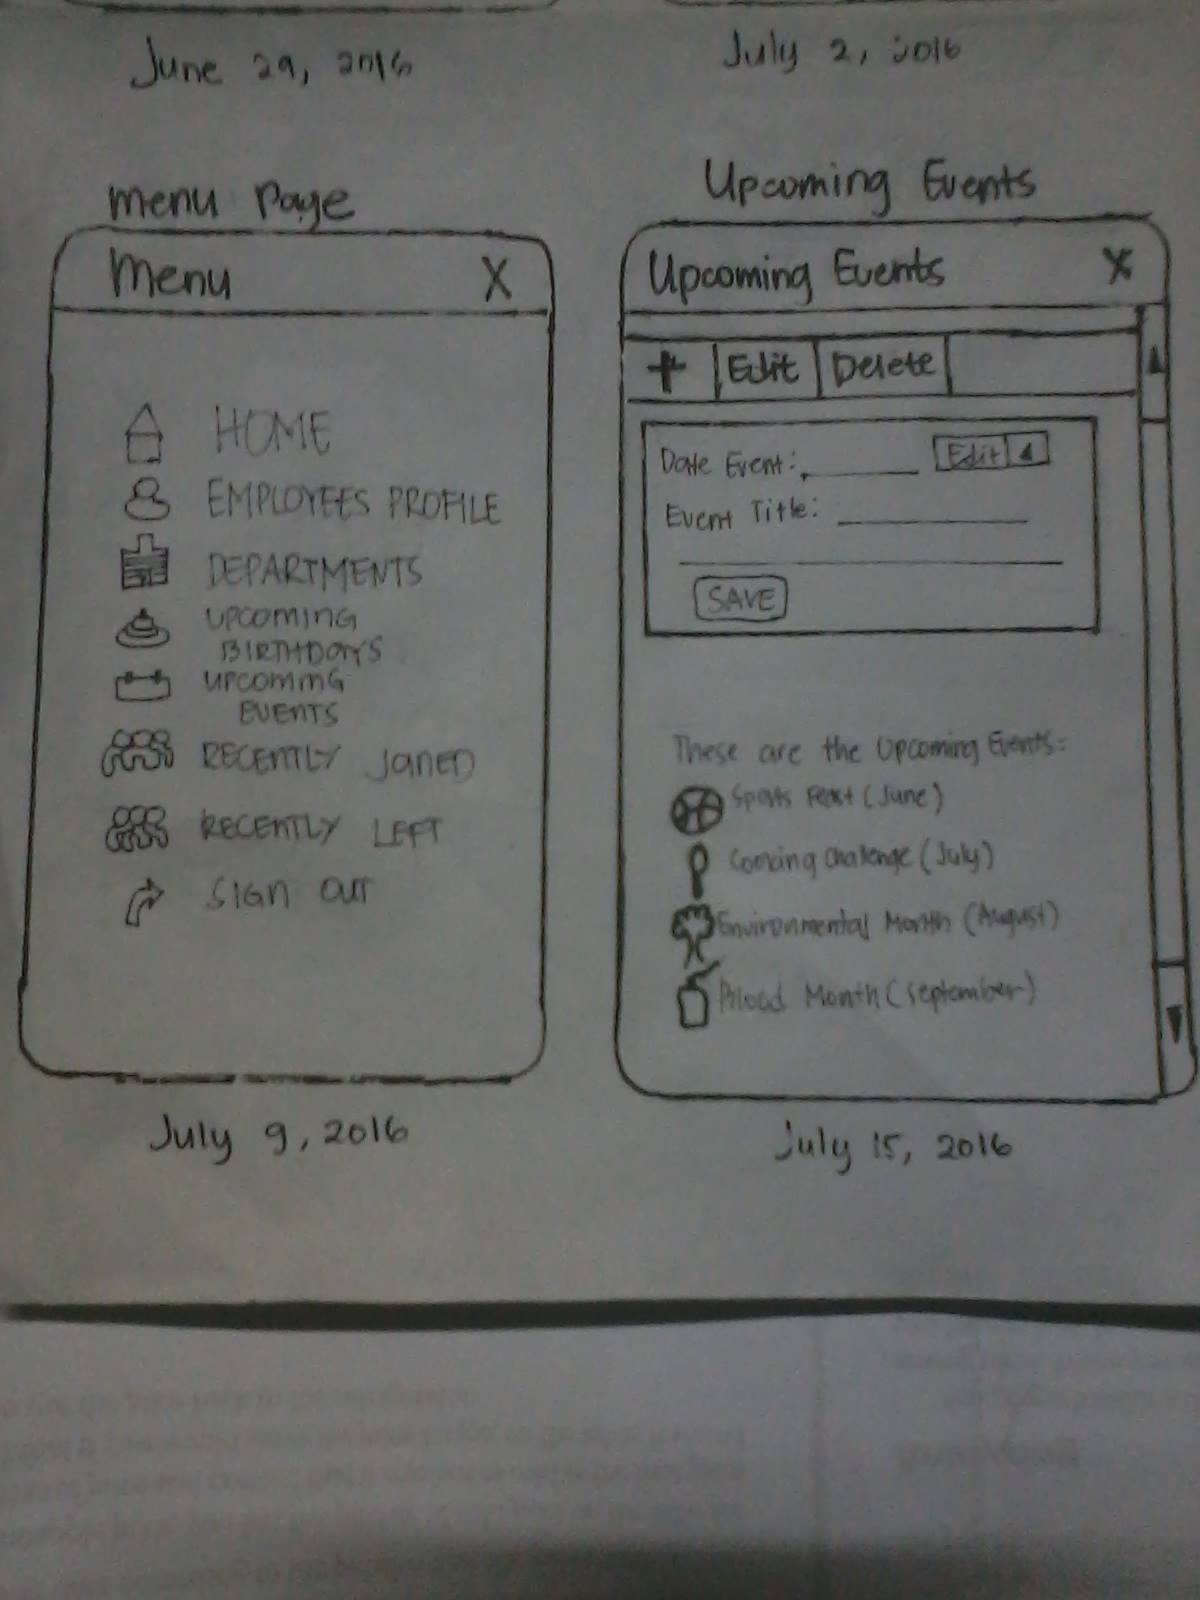 June 29, 2016
July 2, 2016
Menu Page
Menu X
HOME
EMPLOYEES PROFILE
DEPARTMENTS
UPCOMING
BIRTHDAYS
UPCOMING
EVENTS
RECENTLY JOINED
RECENTLY LEFT
SIGN OUT
July 9, 2016
Upcoming Events
Upcoming Events X
+ Edit Delete
Date Event: Edit
Event Title:
SAVE
These are the Upcoming Events:
Sports Feast (June)
Cooking Challenge (July)
Environmental Month (August)
Month (September)
July 15, 2016